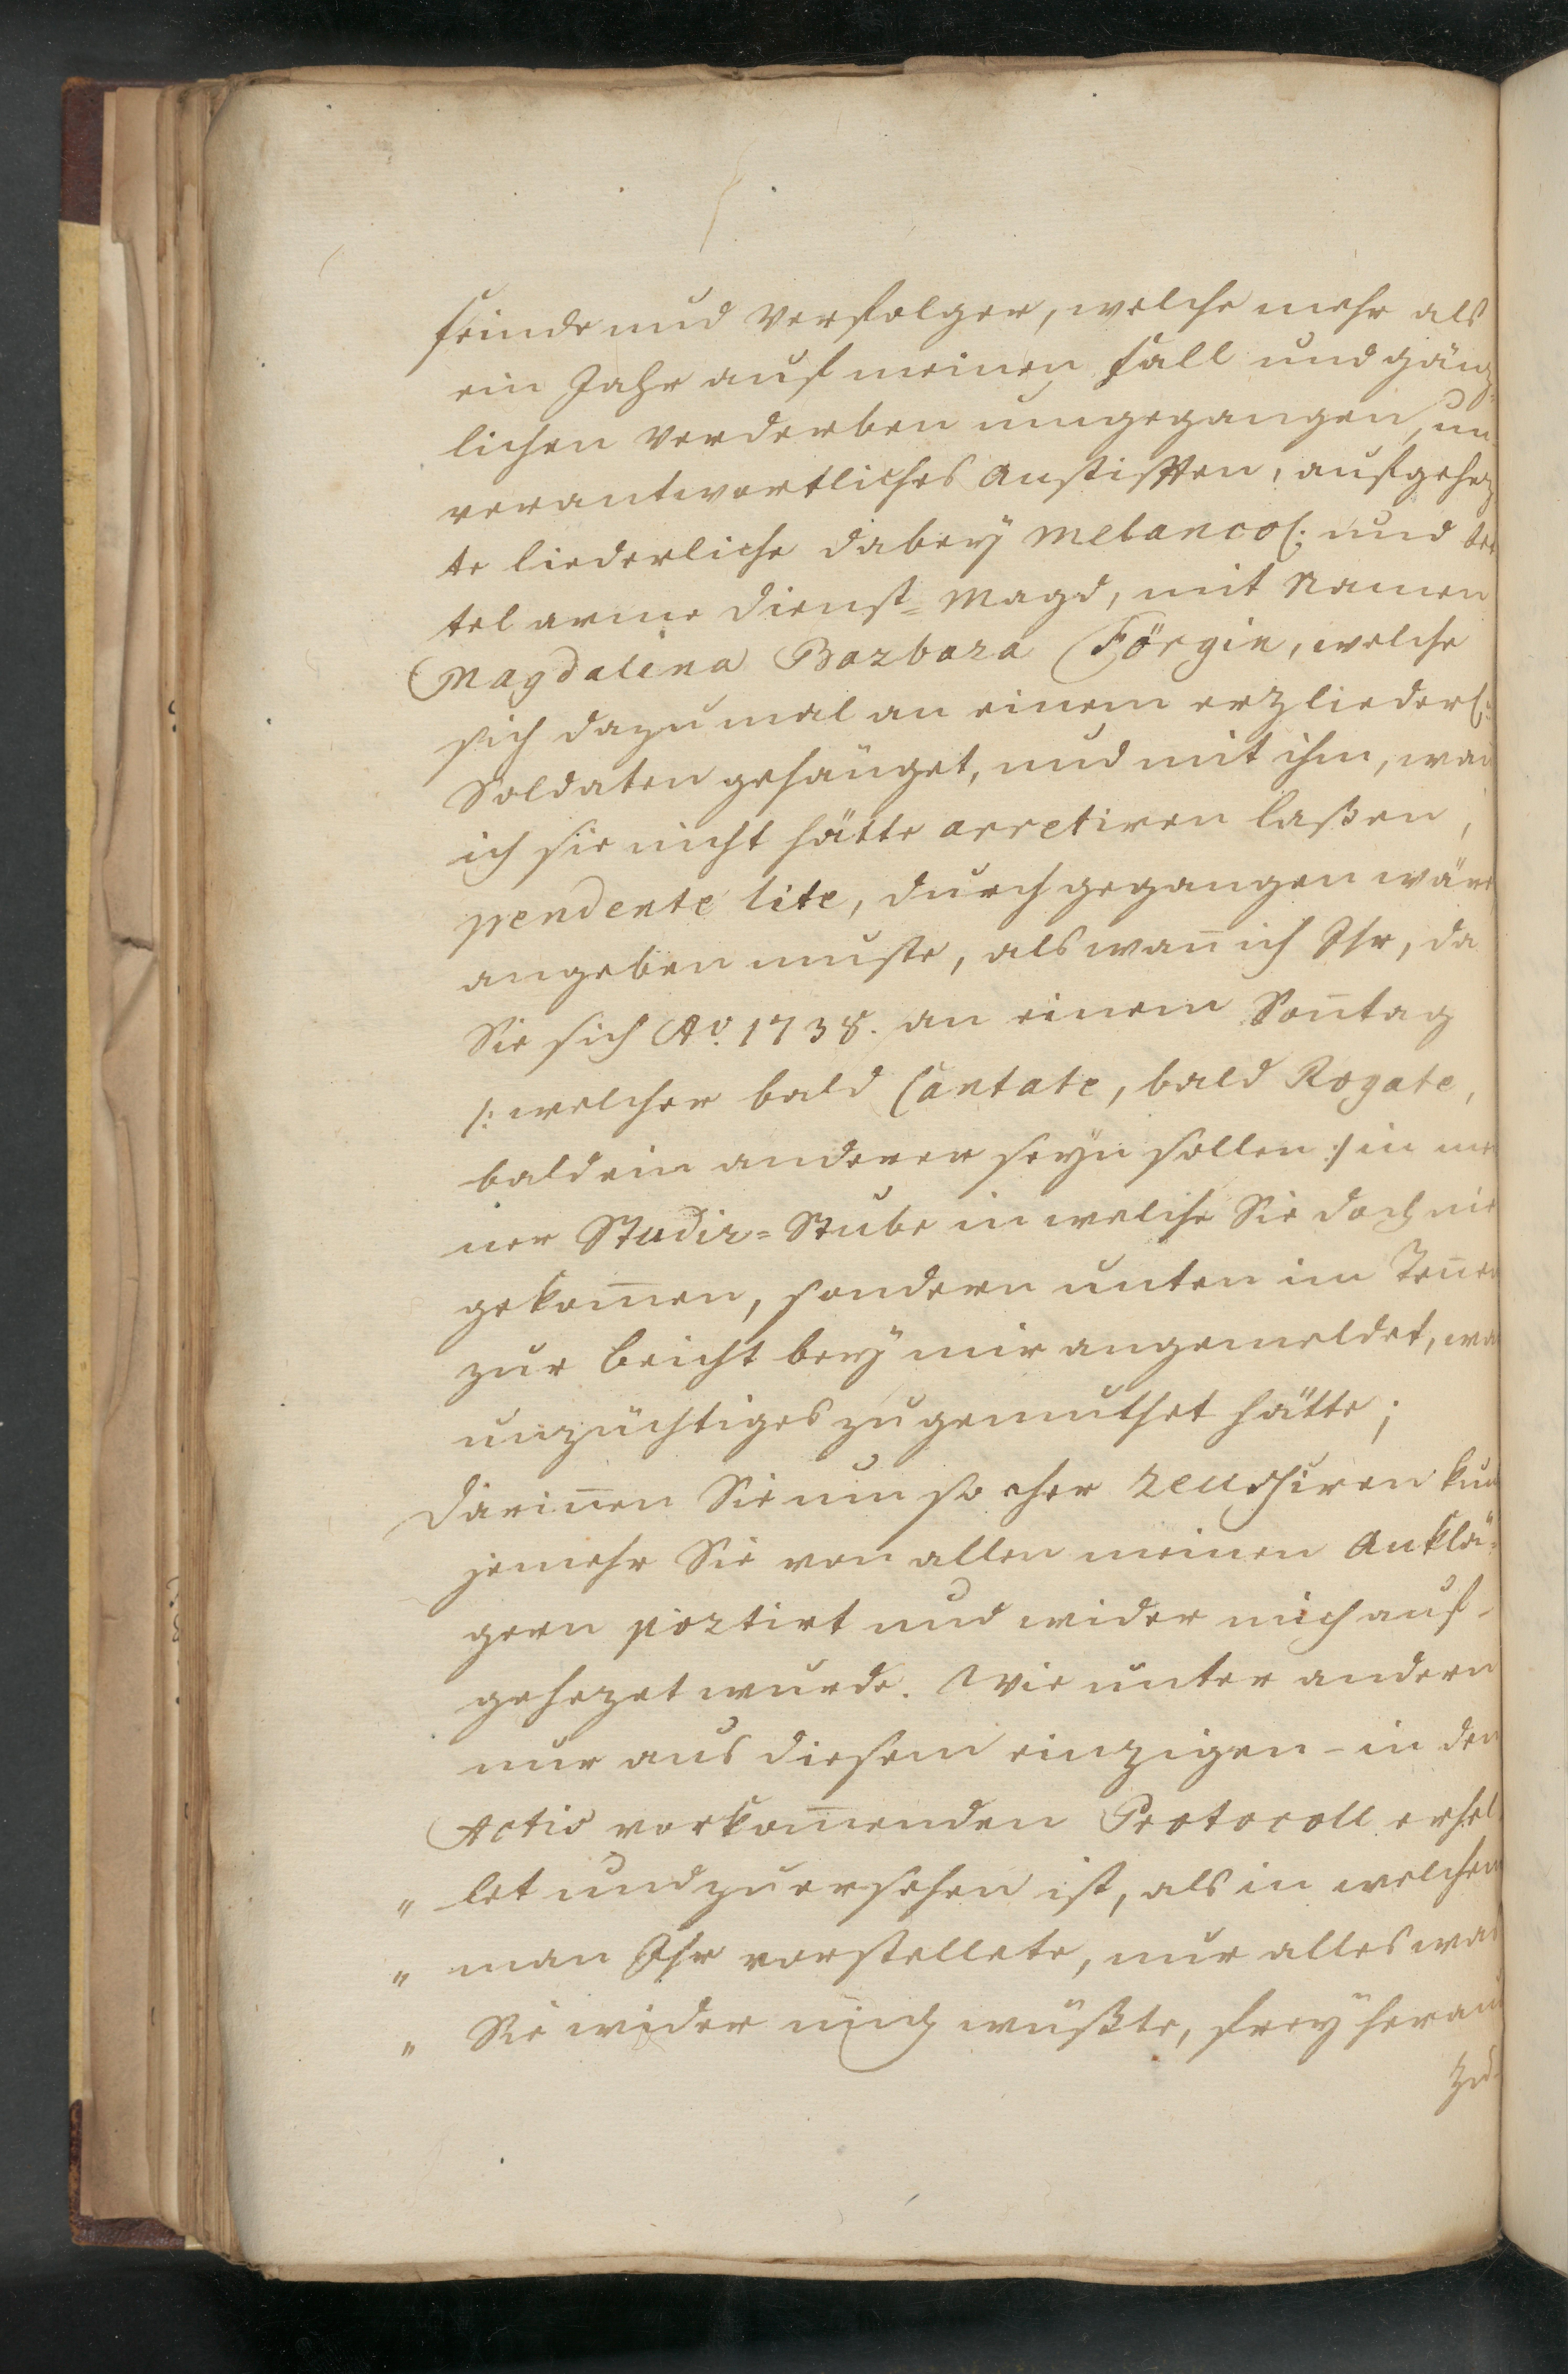 Feinde und Verfolger, welche mehr als
ein Jahr auf meinen Fall und gänz-
lichen Verderben umgegangen, un-
verantwortliches Anstifften, aufgehez-
te liederliche dabey melancol: und bet
tel arme Dienst-Magd, mit Namen
Magdalena Barbara Försgin, welche
sich dazumal an einem erzliederl:
Soldaten gehänget, und mit ihm, wan̄
ich sie nicht hätte arretiren laßen,
pendente lite, durchgegangen wäre
angeben muste, als wan̄ ich Ihr, da
Sie sich Ao. 1738. an einem Son̄tag
/: welcher bald Cantate, bald Rogate,
bald ein anderer seyn sollen :/ in mei
ner Studir-Stube in welche Sie doch nie
gekom̄en, sondern unten im Ten̄en
zur Beicht bey mir angemeldet, was
unzüchtiges zugemuthet hätte;
Darin̄en Sie um so eher reuschiren kun
jemehr Sie von allen meinen Anklä-
gern portirt und wider mich auf-
gehezet wurde. Wie unter andern
nur aus diesem einzigen - in den
Actis vorkom̄enden Protocoll erhel
" let und zu ersehen ist, als in welchem
" man Ihr vorstellete, nur alles was
" Sie wider mich wüßte, frey heraus
zu-